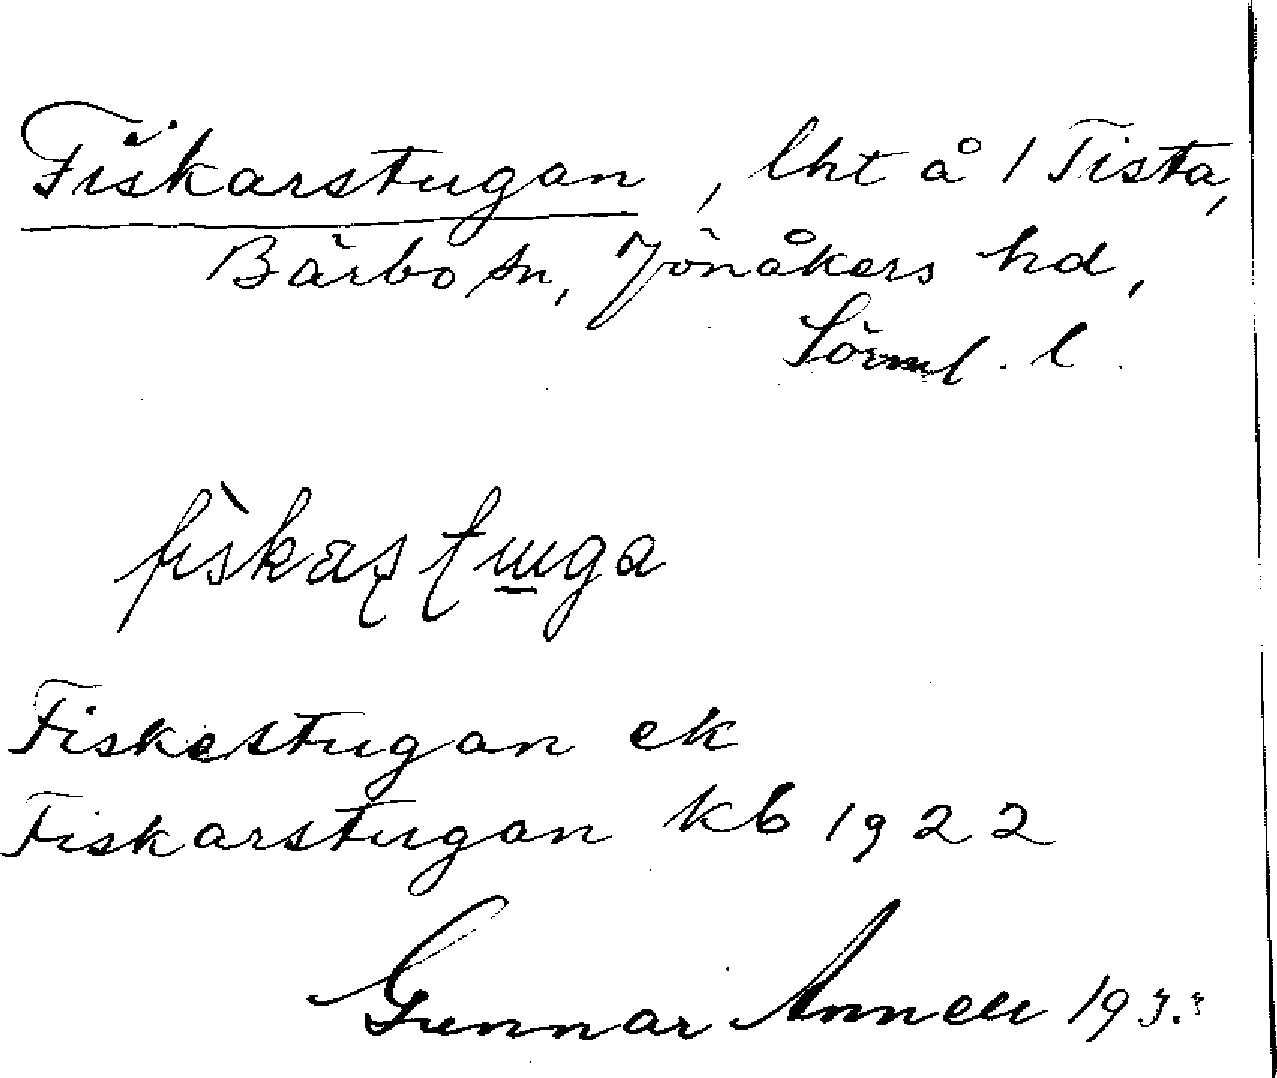 Fiskarstugan, lht å 1 Tista,
Bärbo sn, Jönåkers hd,
Sörml. l.
fiskaʂʈɯga
Fiskestugan ek
Fiskarstugan kb 1922
Gunnar Annell